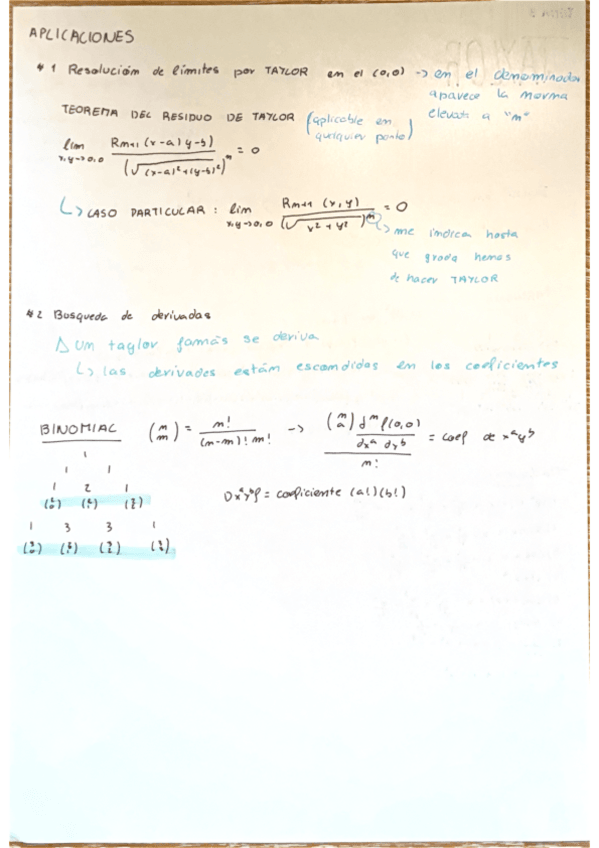 APLICACIONES
#1 Resolución de límites por TAYLOR en el (0,0) -> en el denominador
aparece la norma
elevada a "m"
TEOREMA DEL RESIDUO DE TAYLOR (aplicable en
cualquier punto)
lim x,y->0,0 Rm+1 (x-a, y-b) / (√(x-a)²+(y-b)²)^m = 0
↳ CASO PARTICULAR : lim x,y->0,0 Rm+1 (x,y) / (√x²+y²)^m = 0
↳ me indica hasta
que grado hemos
de hacer TAYLOR
#2 Busqueda de derivadas
△ Um taylor jamás se deriva
↳ las derivadas están escondidas en los coeficientes
BINOMIAL (m m) = m! / (m-m)! m! -> (m a) d^m f(0,0) / dx^a dy^b / m! = coef de x^a y^b
1
1 1
1 2 1
(2 0) (2 1) (2 2)
Dx^a y^b f = coeficiente (a!)(b!)
1 3 3 1
(3 0) (3 1) (3 2) (3 3)